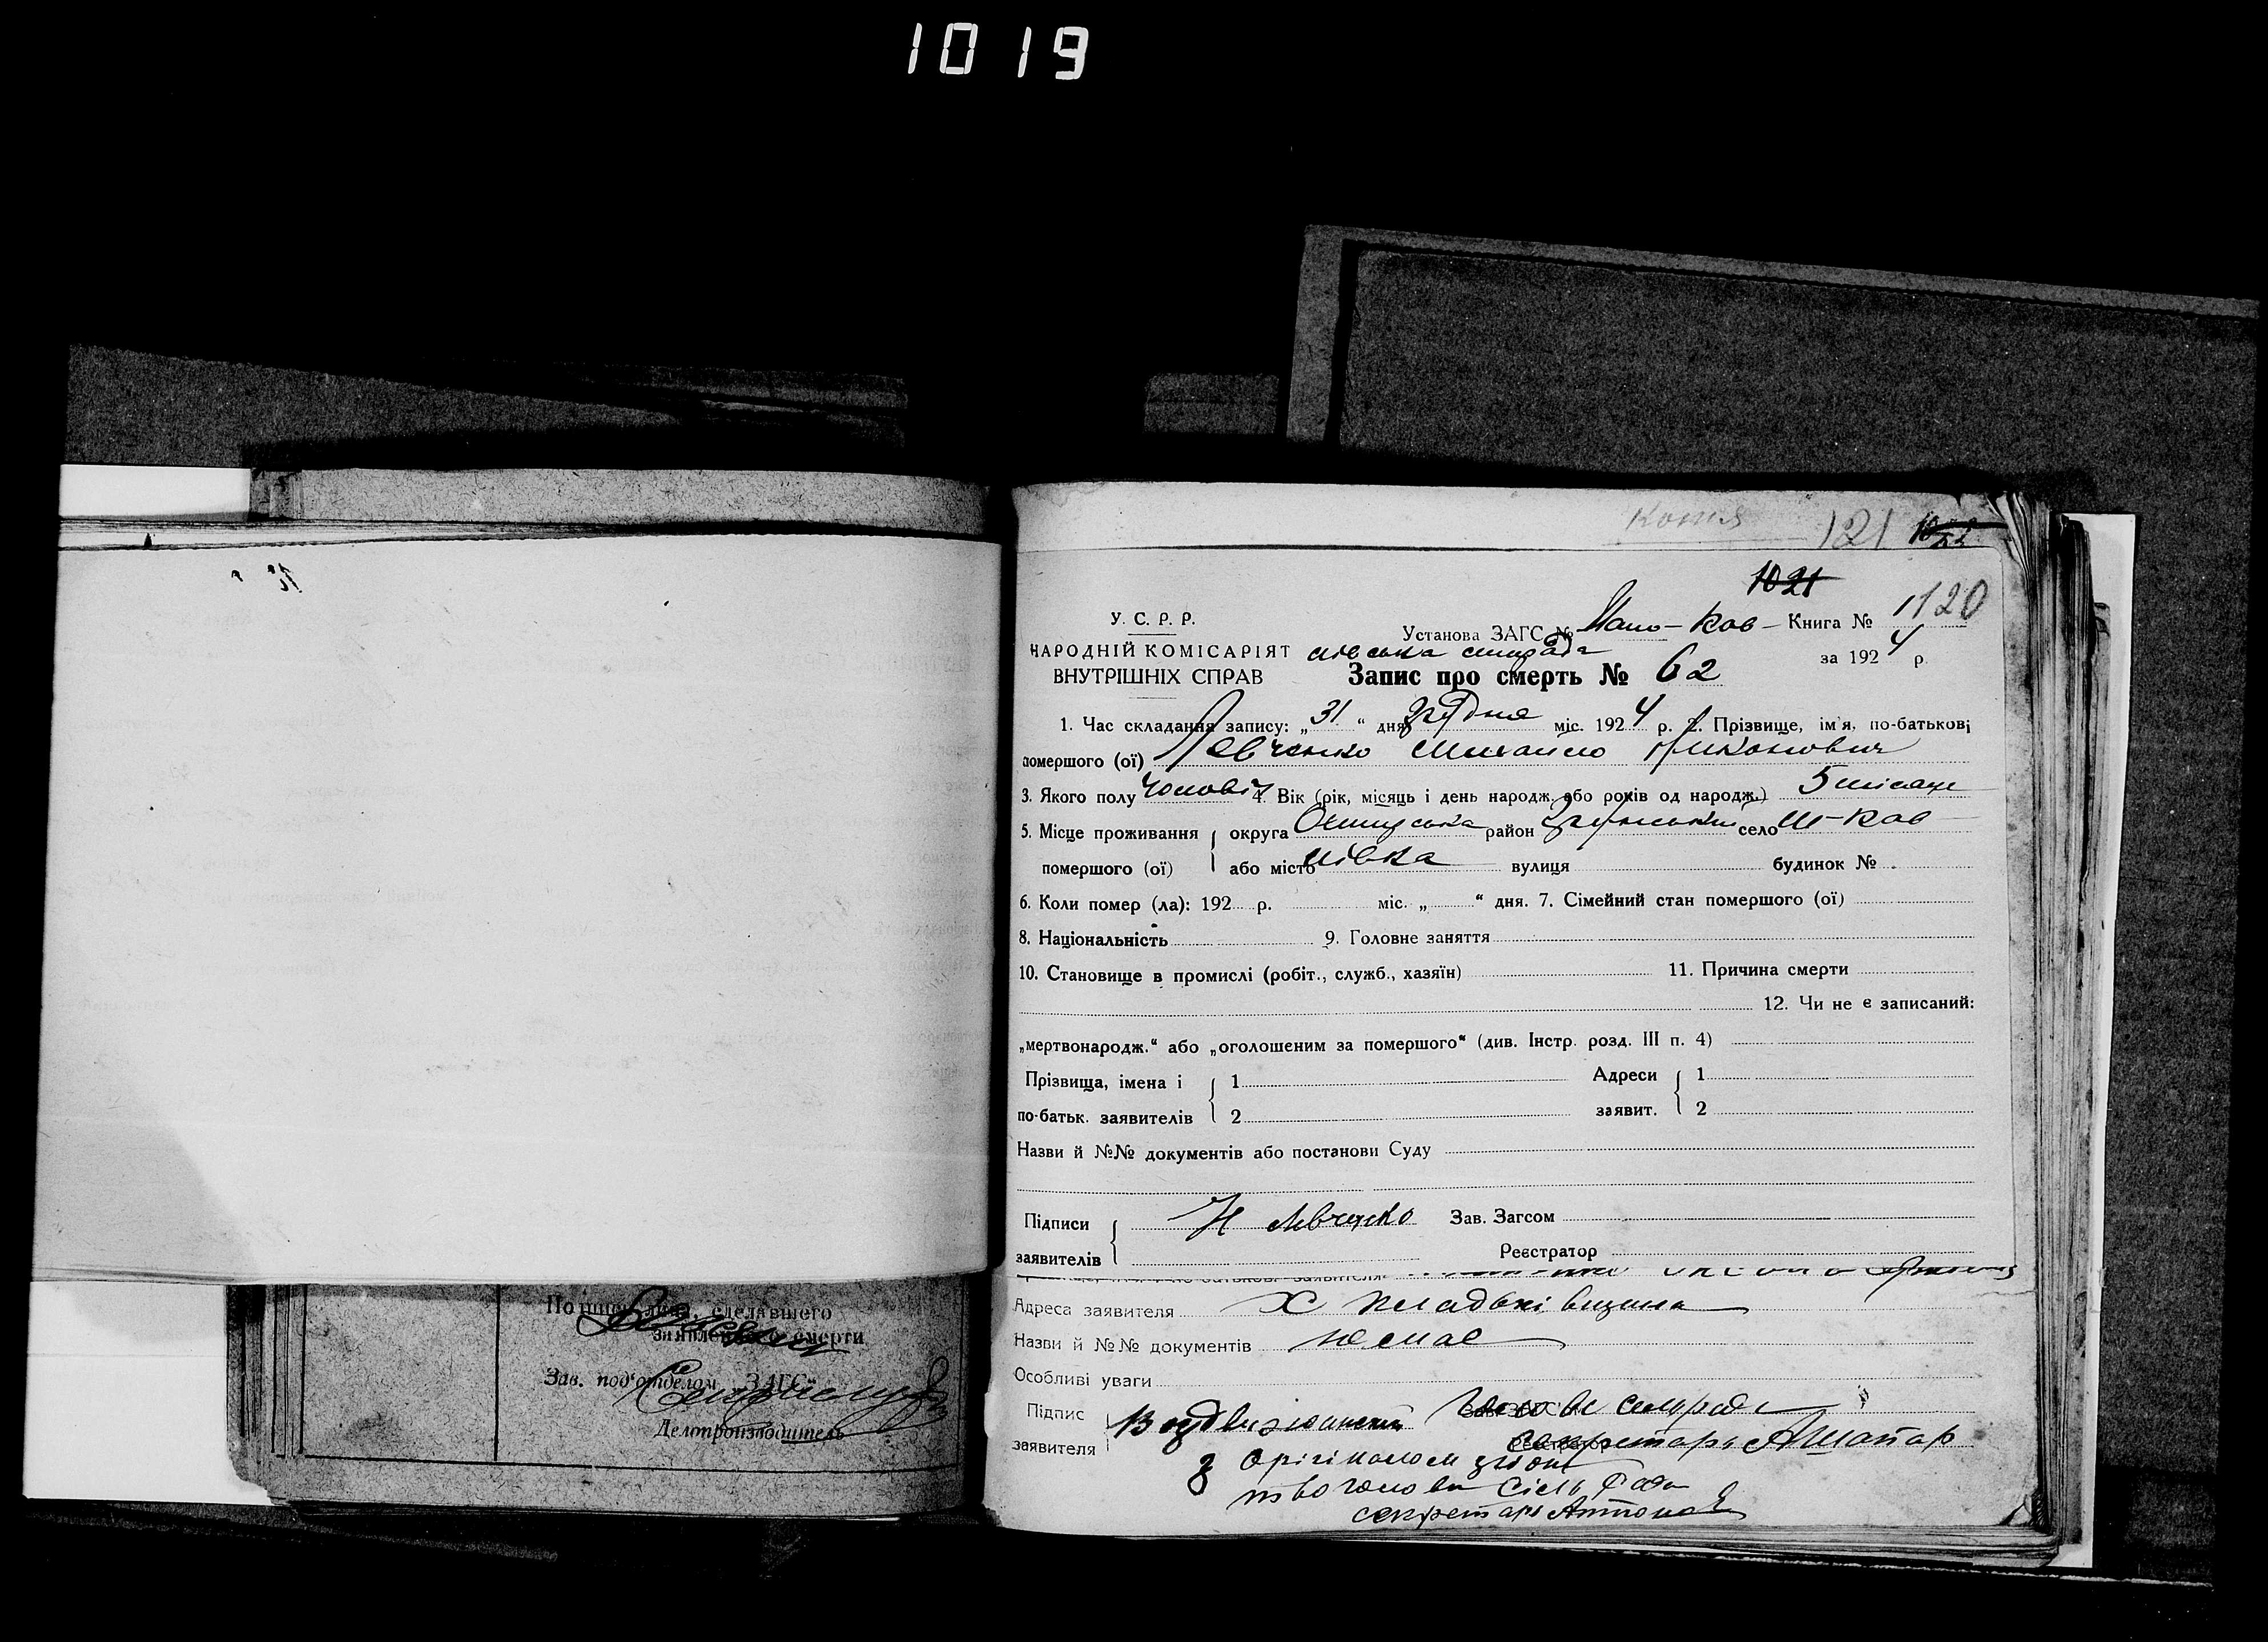 1019
копія 121
1021
У. С. Р. Р.
Установа ЗАГС № Мало-Ков- Книга № 1120
НАРОДНІЙ КОМІСАРІЯТ
ВНУТРІШНІХ СПРАВ
лівська сільрада
за 1924 р.
Запис про смерть № 62
1. Час складання запису: „31“ дня грудня міс. 1924 р. 2. Прізвище, ім'я, по-батькові
помершого (ої) Левченко Михайло Никонович
3. Якого полу чоловіч 4. Вік (рік, місяць і день народж. або років од народж.) 5 місяце
5. Місце проживання округа район село М-Ков
помершого (ої) або місто лівка вулиця будинок №
6. Коли помер (ла): 192 р. міс. „ “ дня. 7. Сімейний стан помершого (ої)
8. Національність 9. Головне заняття
10. Становище в промислі (робіт., служб., хазяїн) 11. Причина смерти
12. Чи не є записаний:
„мертвонародж.“ або „оголошеним за помершого“ (див. Інстр. розд. III п. 4)
Прізвища, імена і 1 Адреси 1
по-батьк. заявителів 2 заявит. 2
Назви й №№ документів або постанови Суду
Підписи Н Левченко Зав. Загсом
заявителів Реєстратор
Адреса заявителя Х
Назви й №№ документів немає
Особливі уваги
Підпис Голова сільради
заявителя секретарь
З орігіналом згідно
голови Сільради
секретарь
Подпись лица, сделавшего
заявление о смерти
Зав. под'отделом ЗАГС
Делопроизводитель